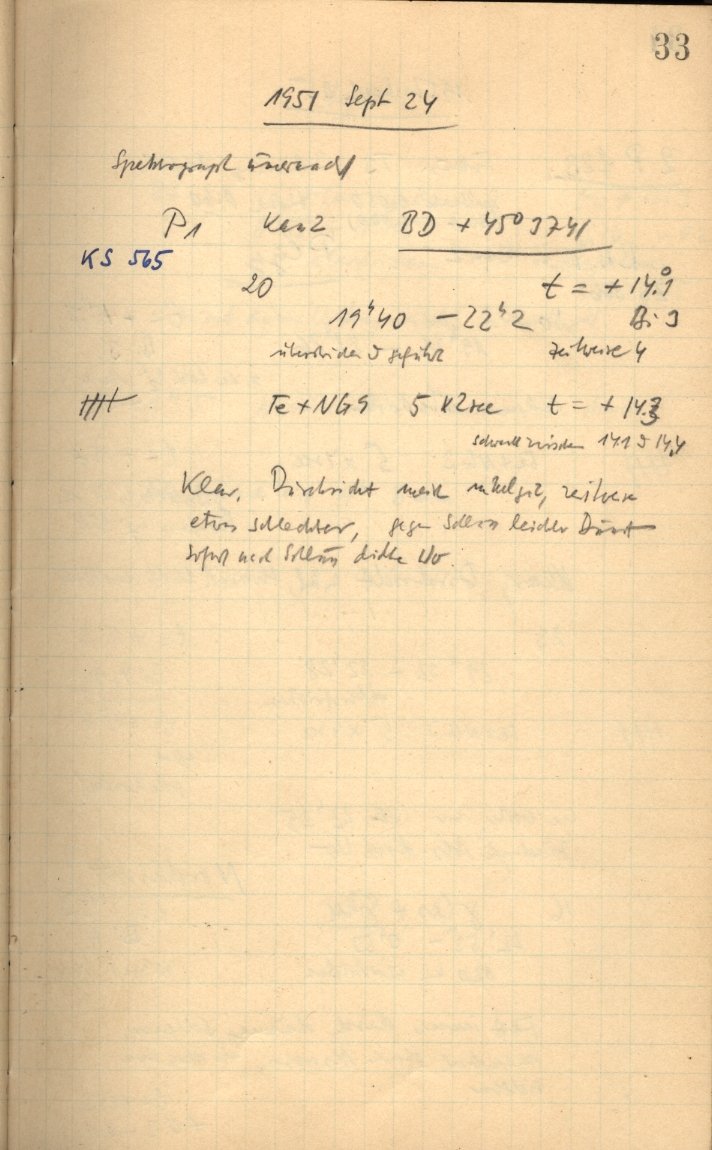 33
1951 Sept 24
Spektrograph
P1 Kam2 BD +45° 3741
KS 565
20 t = + 14.°1
19ʰ40 – 22ʰ2 Bi 3
geführt zeitweise 4
Fe + NGS 5 x 2sec t = + 14.3
schwankt zwischen 14.1 & 14.4
Klar, Durchsicht meist mittelgut, zeitweise
etwas schlechter, gegen Schluss leichter Dunst
Sofort nach Schluss dicke Wo